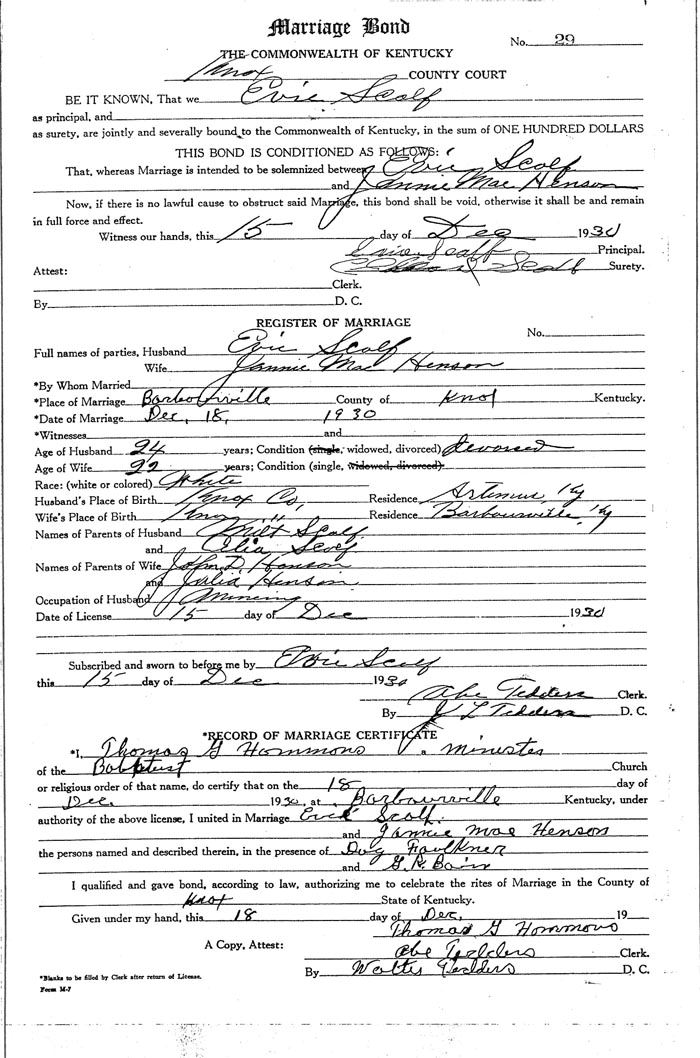 Marriage Bond
No. 29
THE COMMONWEALTH OF KENTUCKY
Knox COUNTY COURT
BE IT KNOWN, That we Evie Scalf
as principal, and
as surety, are jointly and severally bound to the Commonwealth of Kentucky, in the sum of ONE HUNDRED DOLLARS
THIS BOND IS CONDITIONED AS FOLLOWS:
That, whereas Marriage is intended to be solemnized between Evie Scalf
and Jannie Mae Henson
Now, if there is no lawful cause to obstruct said Marriage, this bond shall be void, otherwise it shall be and remain
in full force and effect.
Witness our hands, this 15 day of Dec 1930
Evie Scalf Principal.
Scalf Surety.
Attest:
Clerk.
By D. C.
REGISTER OF MARRIAGE
No.
Full names of parties, Husband Evie Scalf
Wife Jannie Mae Henson
*By Whom Married
*Place of Marriage Barbourville County of Knox Kentucky.
*Date of Marriage Dec, 18, 1930
*Witnesses and
Age of Husband 24 years; Condition (single, widowed, divorced) devorced
Age of Wife 22 years; Condition (single, widowed, divorced)
Race: (white or colored) White
Husband's Place of Birth Knox Co, Residence Artemus, Ky
Wife's Place of Birth Knox " Residence Barbourville, Ky
Names of Parents of Husband Milt Scalf
and Celia Scalf
Names of Parents of Wife John D. Henson
and Julia Henson
Occupation of Husband Mineing
Date of License 15 day of Dec 1930
Subscribed and sworn to before me by Evie Scalf
this 15 day of Dec 1930
Abe Tedders Clerk.
By J L Tedders D. C.
*RECORD OF MARRIAGE CERTIFICATE
*I, Thomas G Hommons a minister
of the Babptist Church
or religious order of that name, do certify that on the 18 day of
Dec. 1930, at Barbourville Kentucky, under
authority of the above license, I united in Marriage Evie Scalf.
and Jannie Mae Henson
the persons named and described therein, in the presence of Dog Faulkner
and G. R. Bain
I qualified and gave bond, according to law, authorizing me to celebrate the rites of Marriage in the County of
Knox State of Kentucky.
Given under my hand, this 18 day of Dec, 19
Thomas G Hommons
A Copy, Attest: Abe Tedders Clerk.
By Walter Tedders D. C.
*Blanks to be filled by Clerk after return of License.
Form M-7